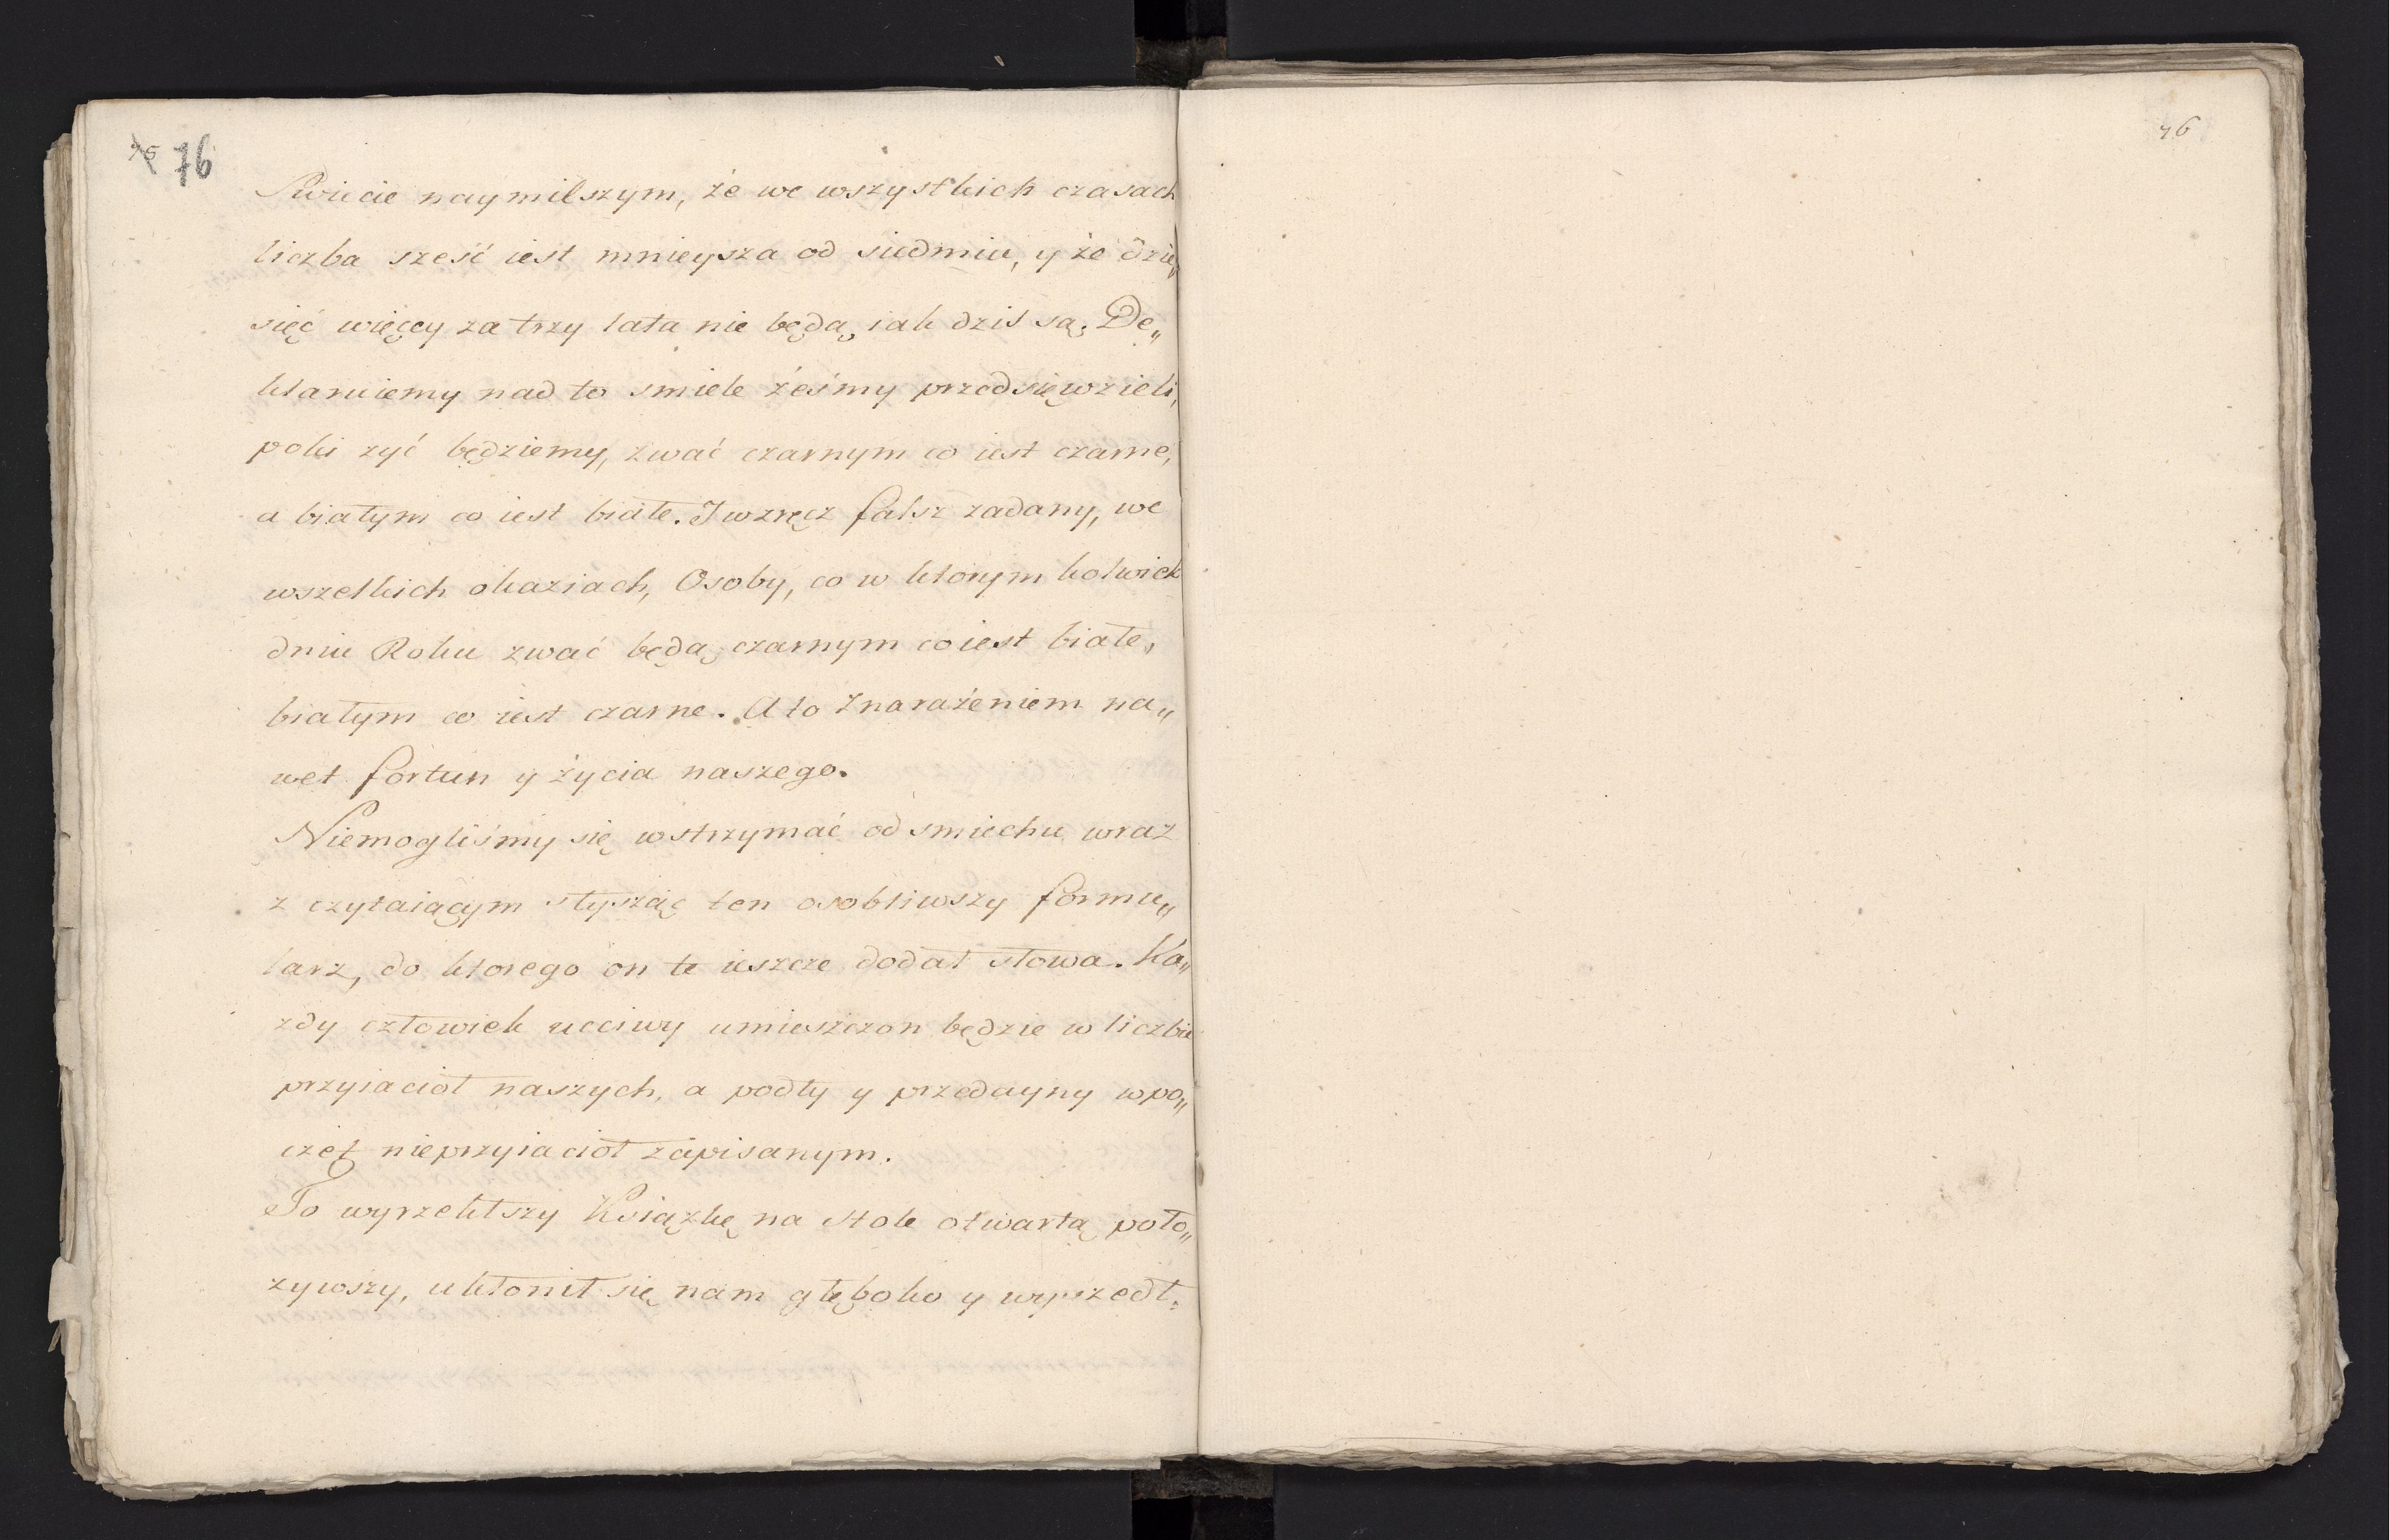 75 76
Swiecie naymilszym, że we wszystkich czasach
liczba sześć iest mnieysza od siedmiu, y że dzie„
sięć więcey za trzy lata nie będą, iak dziś są. De„
klaruiemy nad to smiele żeśmy przedsięwzieli,
poki zyć będziemy, zwać czarnym co iest czarne,
a białym co iest białe. I wzręcz fałsz zadany, we
wszelkich okaziach, Osoby, co w ktorym kolwiek
dniu Roku zwać będą czarnym co iest białe,
białym co iest czarne. A to z narażeniem na„
wet fortun y życia naszego.
Niemogliśmy się wstrzymać od smiechu wraz
z czytaiącym słysząc ten osobliwszy formu„
larz, do ktorego on te ieszcze dodał słowa. Ka„
zdy człowiek ucciwy umieszczon będzie w liczbie
przyiacioł naszych, a podły y przedayny w po„
czet nieprzyiacioł zapisanym.
To wyrzekłszy Książkę na stole otwartą poło„
zywszy, ukłonił się nam głęboko y wyszedł.
76